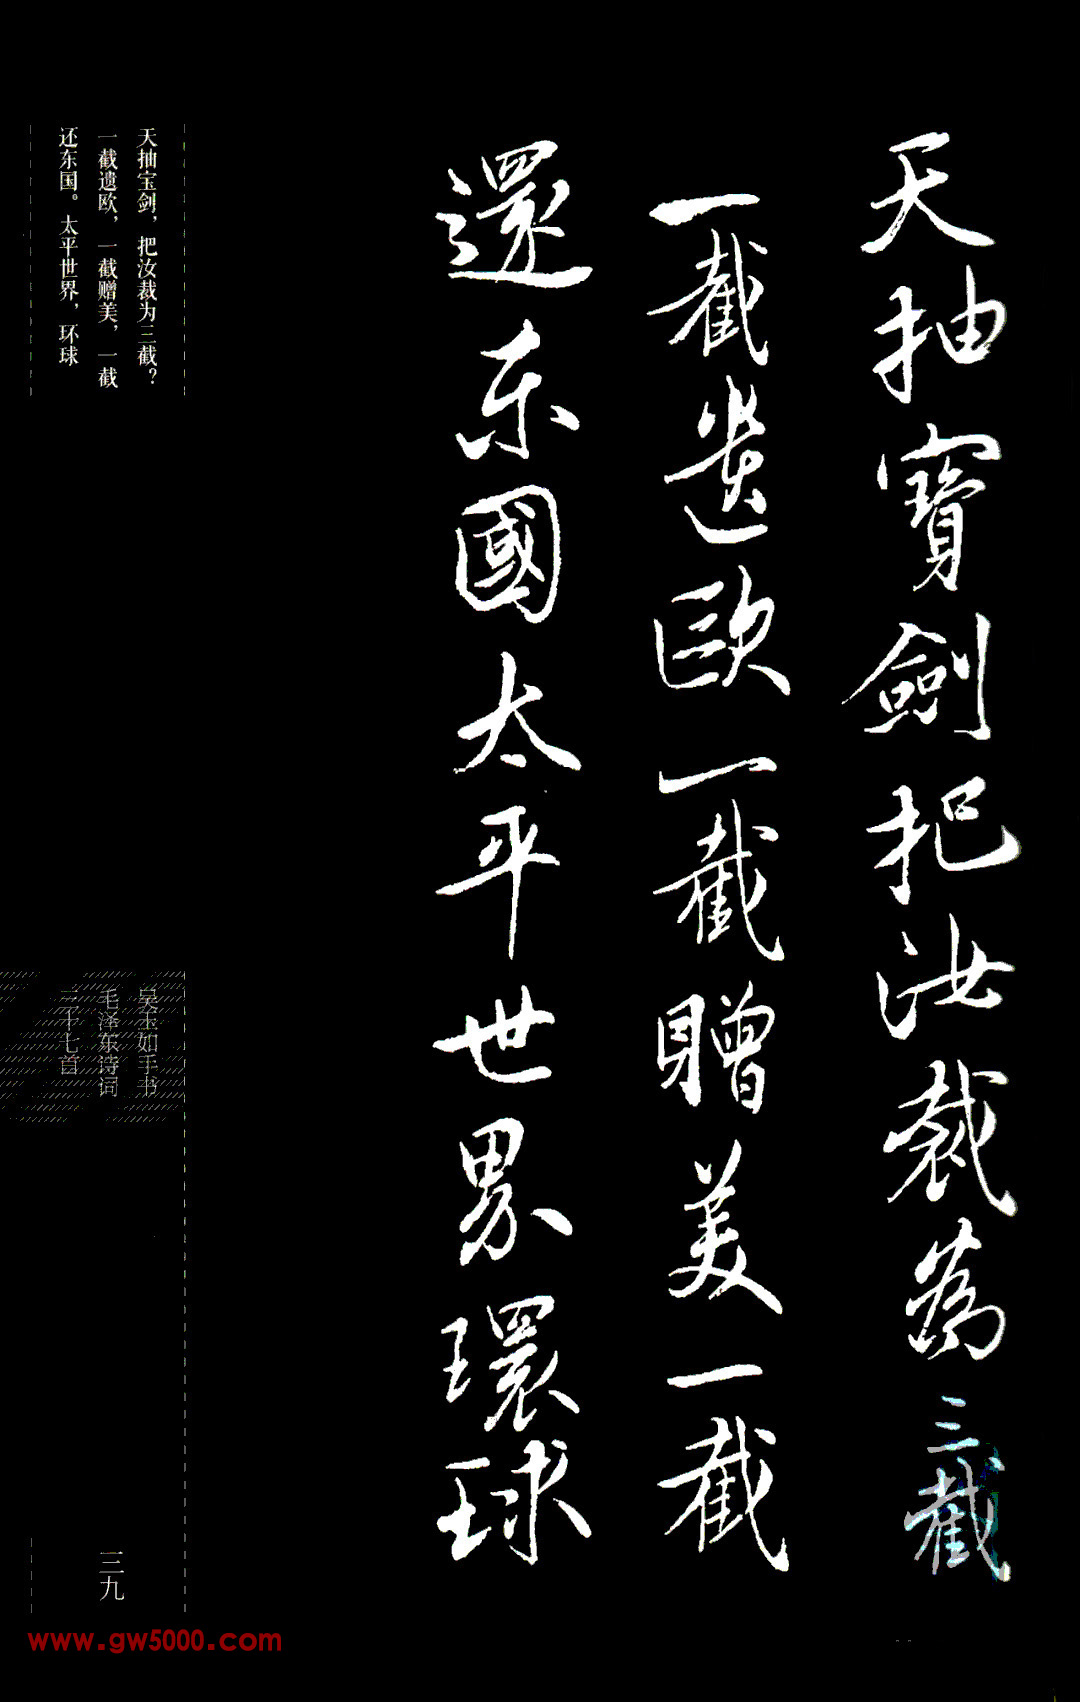 天抽寶劍把汝裁為三截
一截遺歐一截贈美一截
還東國太平世界環球
天抽宝剑，把汝裁为三截？
一截遗欧，一截赠美，一截
还东国。太平世界，环球
吴玉如手书
毛泽东诗词
三十七首
三九
www.gw5000.com